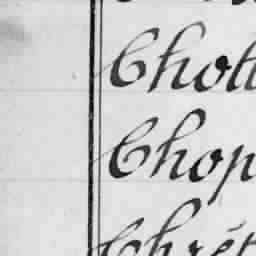 Chott
Chop
Chrét